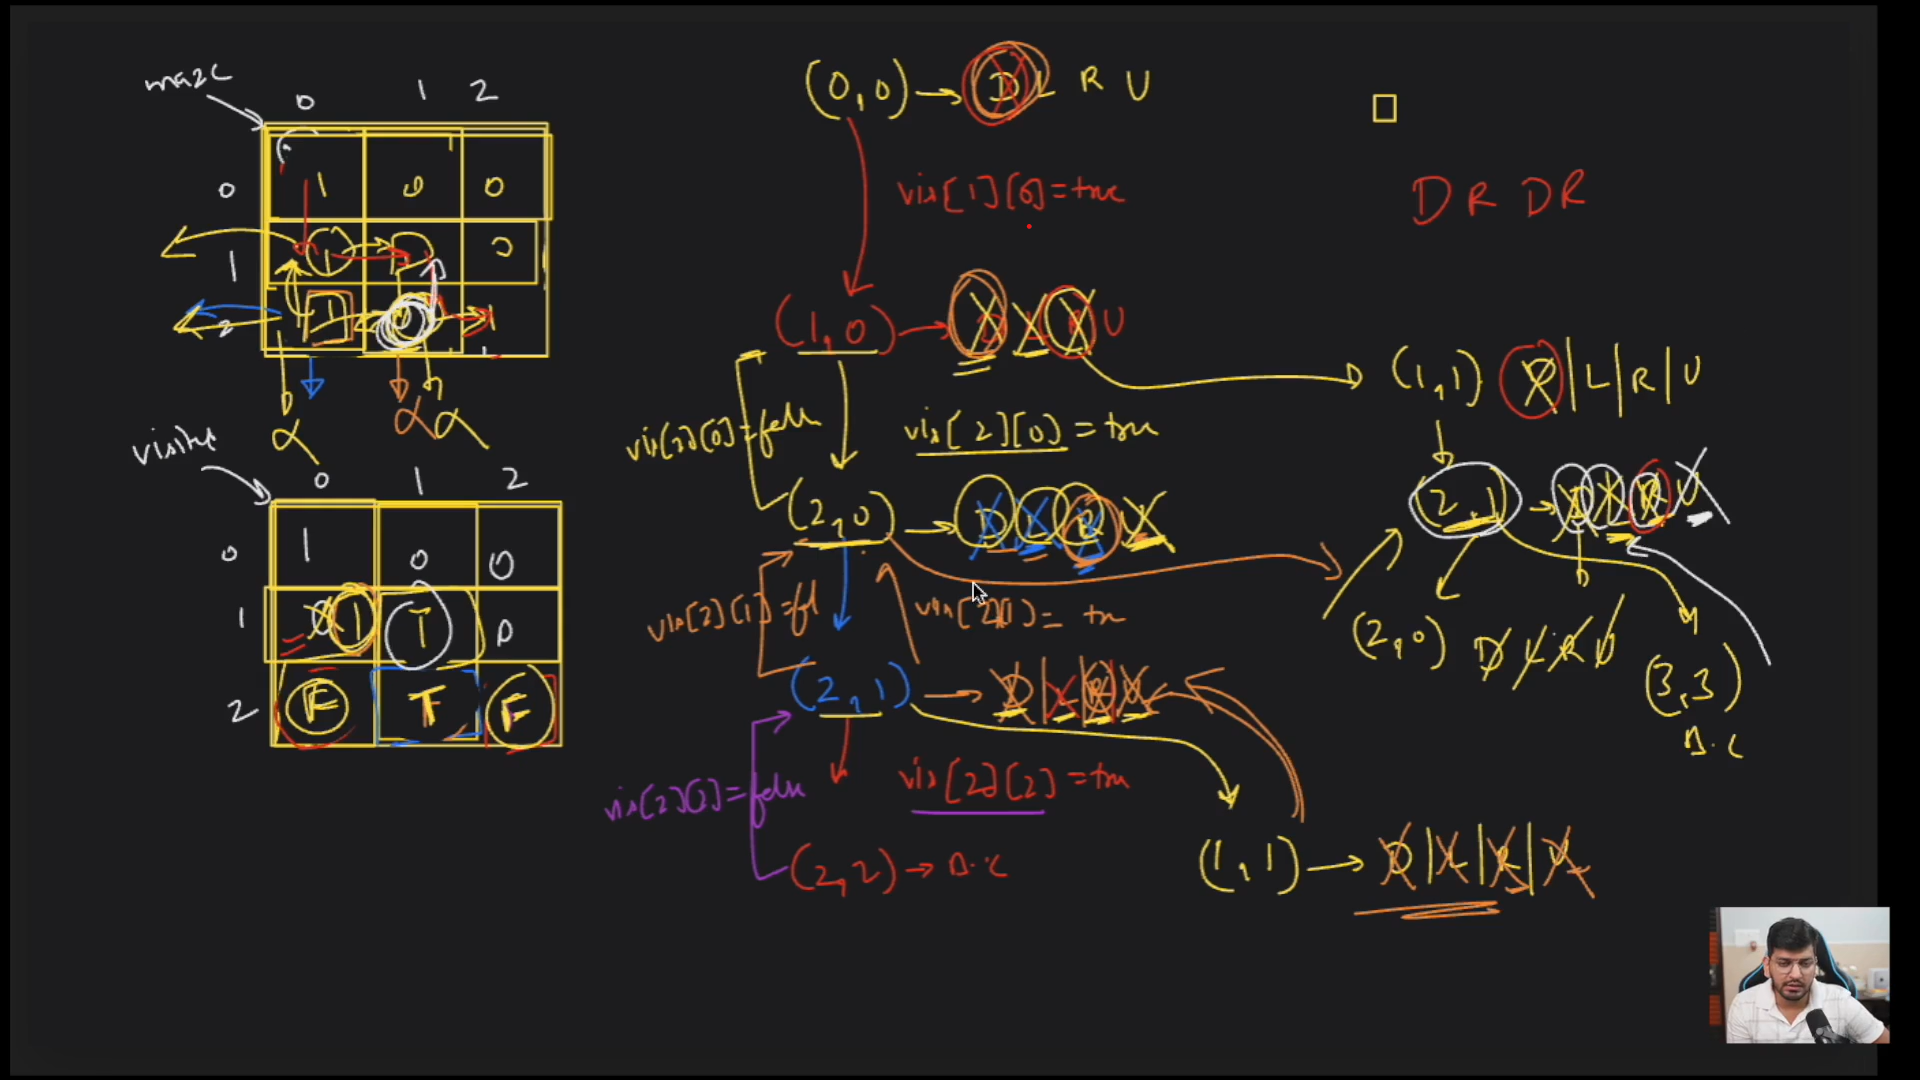 maze
0 1 2
0 1 0 0
1 1 1 0
2 1 1 1
visited
0 1 2
0 1 0 0
1 1 T 0
2 F T F
(0,0) → D L R U
vis[1][0] = true
(1,0) → D L R U
vis[2][0] = false
vis[2][0] = true
(2,0) → D L R U
vis[2][1] = fal
vis[2][1] = tr
(2,1) → D | L | R | U
vis[2][2] = false
vis[2][2] = true
(2,2) → B.C
(1,1) → D | L | R | U
D R D R
(1,1) D | L | R | U
(2,1) → D L R U
(2,0) D L R U
D
(3,3)
B.C